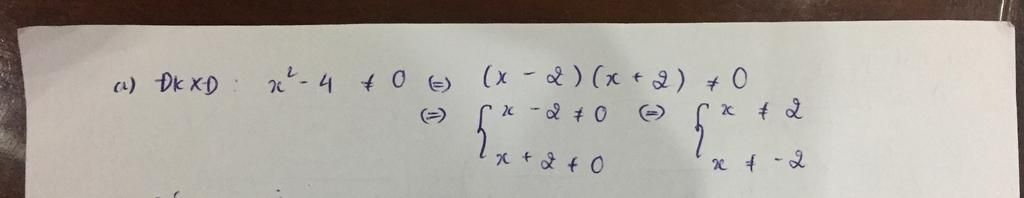 a) ĐKXĐ: x² - 4 ≠ 0 (=) (x - 2)(x + 2) ≠ 0
(=) { x - 2 ≠ 0 (=) { x ≠ 2
x + 2 ≠ 0 x ≠ -2